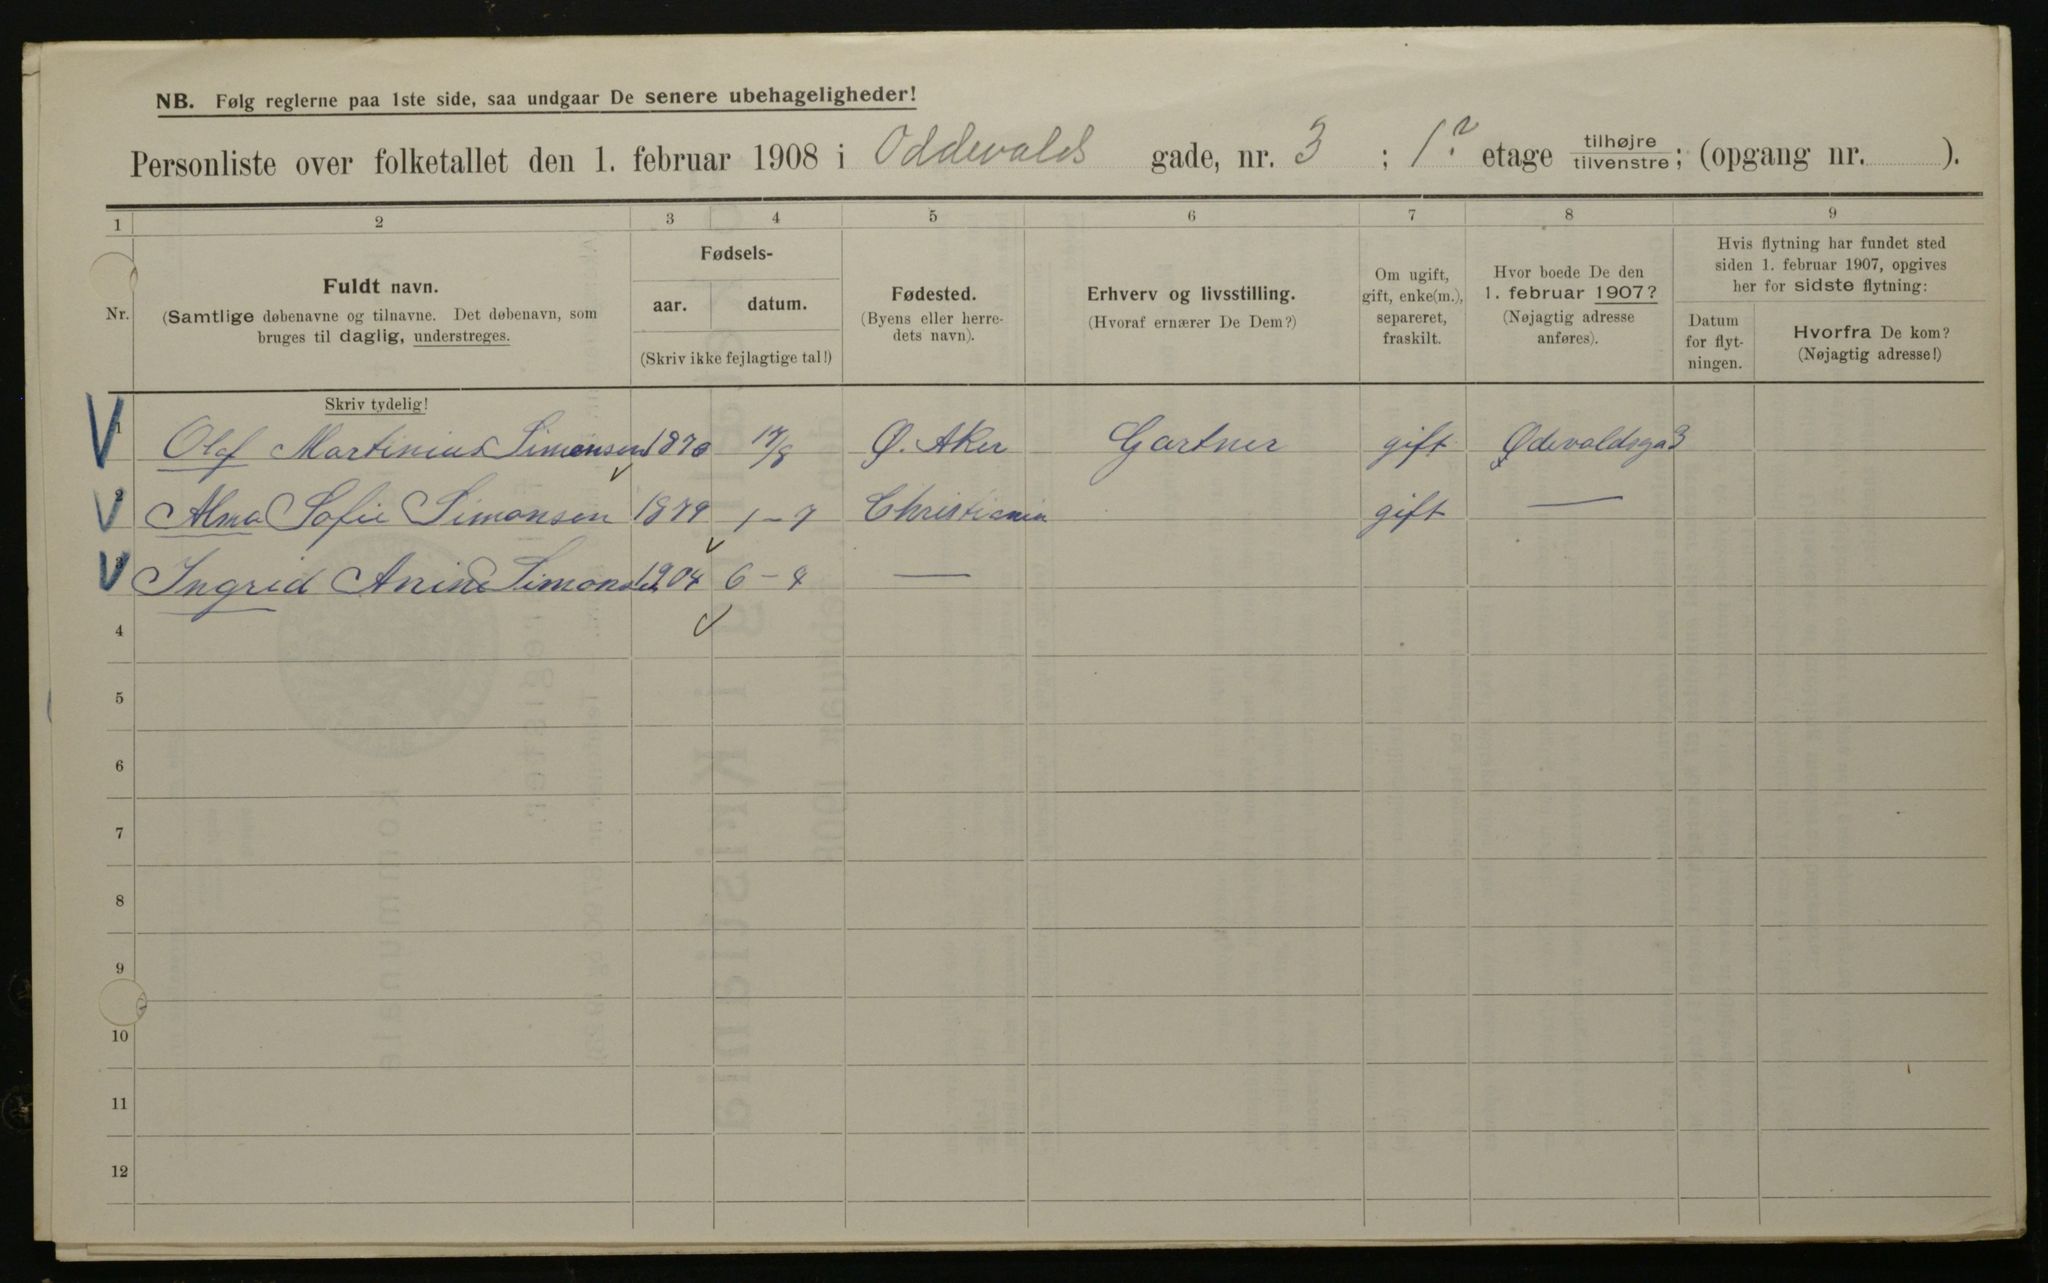 NB. Følg reglerne paa 1ste side, saa undgaar De senere ubehageligheder!
Personliste over folketallet den 1. februar 1908 i Oddevalds gade, nr. 3 ; 1. etage tilhøjre tilvenstre; (opgang nr. ).
1 2 3 4 5 6 7 8 9
Nr.
Fuldt navn.
(Samtlige døbenavne og tilnavne. Det døbenavn, som
bruges til daglig, understreges.
Fødsels-
aar. datum.
(Skriv ikke fejlagtige tal!)
Fødested.
(Byens eller herre-
dets navn).
Erhverv og livsstilling.
(Hvoraf ernærer De Dem?)
Om ugift,
gift, enke(m.),
separeret,
fraskilt.
Hvor boede De den
1. februar 1907?
(Nøjagtig adresse
anføres).
Hvis flytning har fundet sted
siden 1. februar 1907, opgives
her for sidste flytning:
Datum
for flyt-
ningen.
Hvorfra De kom?
(Nøjagtig adresse!)
Skriv tydelig!
1 Olaf Martinius Simensen 1870 17/8 Ø. Aker Gartner gift Ødevaldsga 3
2 Alma Sofie Simonsen 1879 1-7 Christiania gift —
3 Ingrid Anine Simonsen 1904 6-8 —
4
5
6
7
8
9
10
11
12